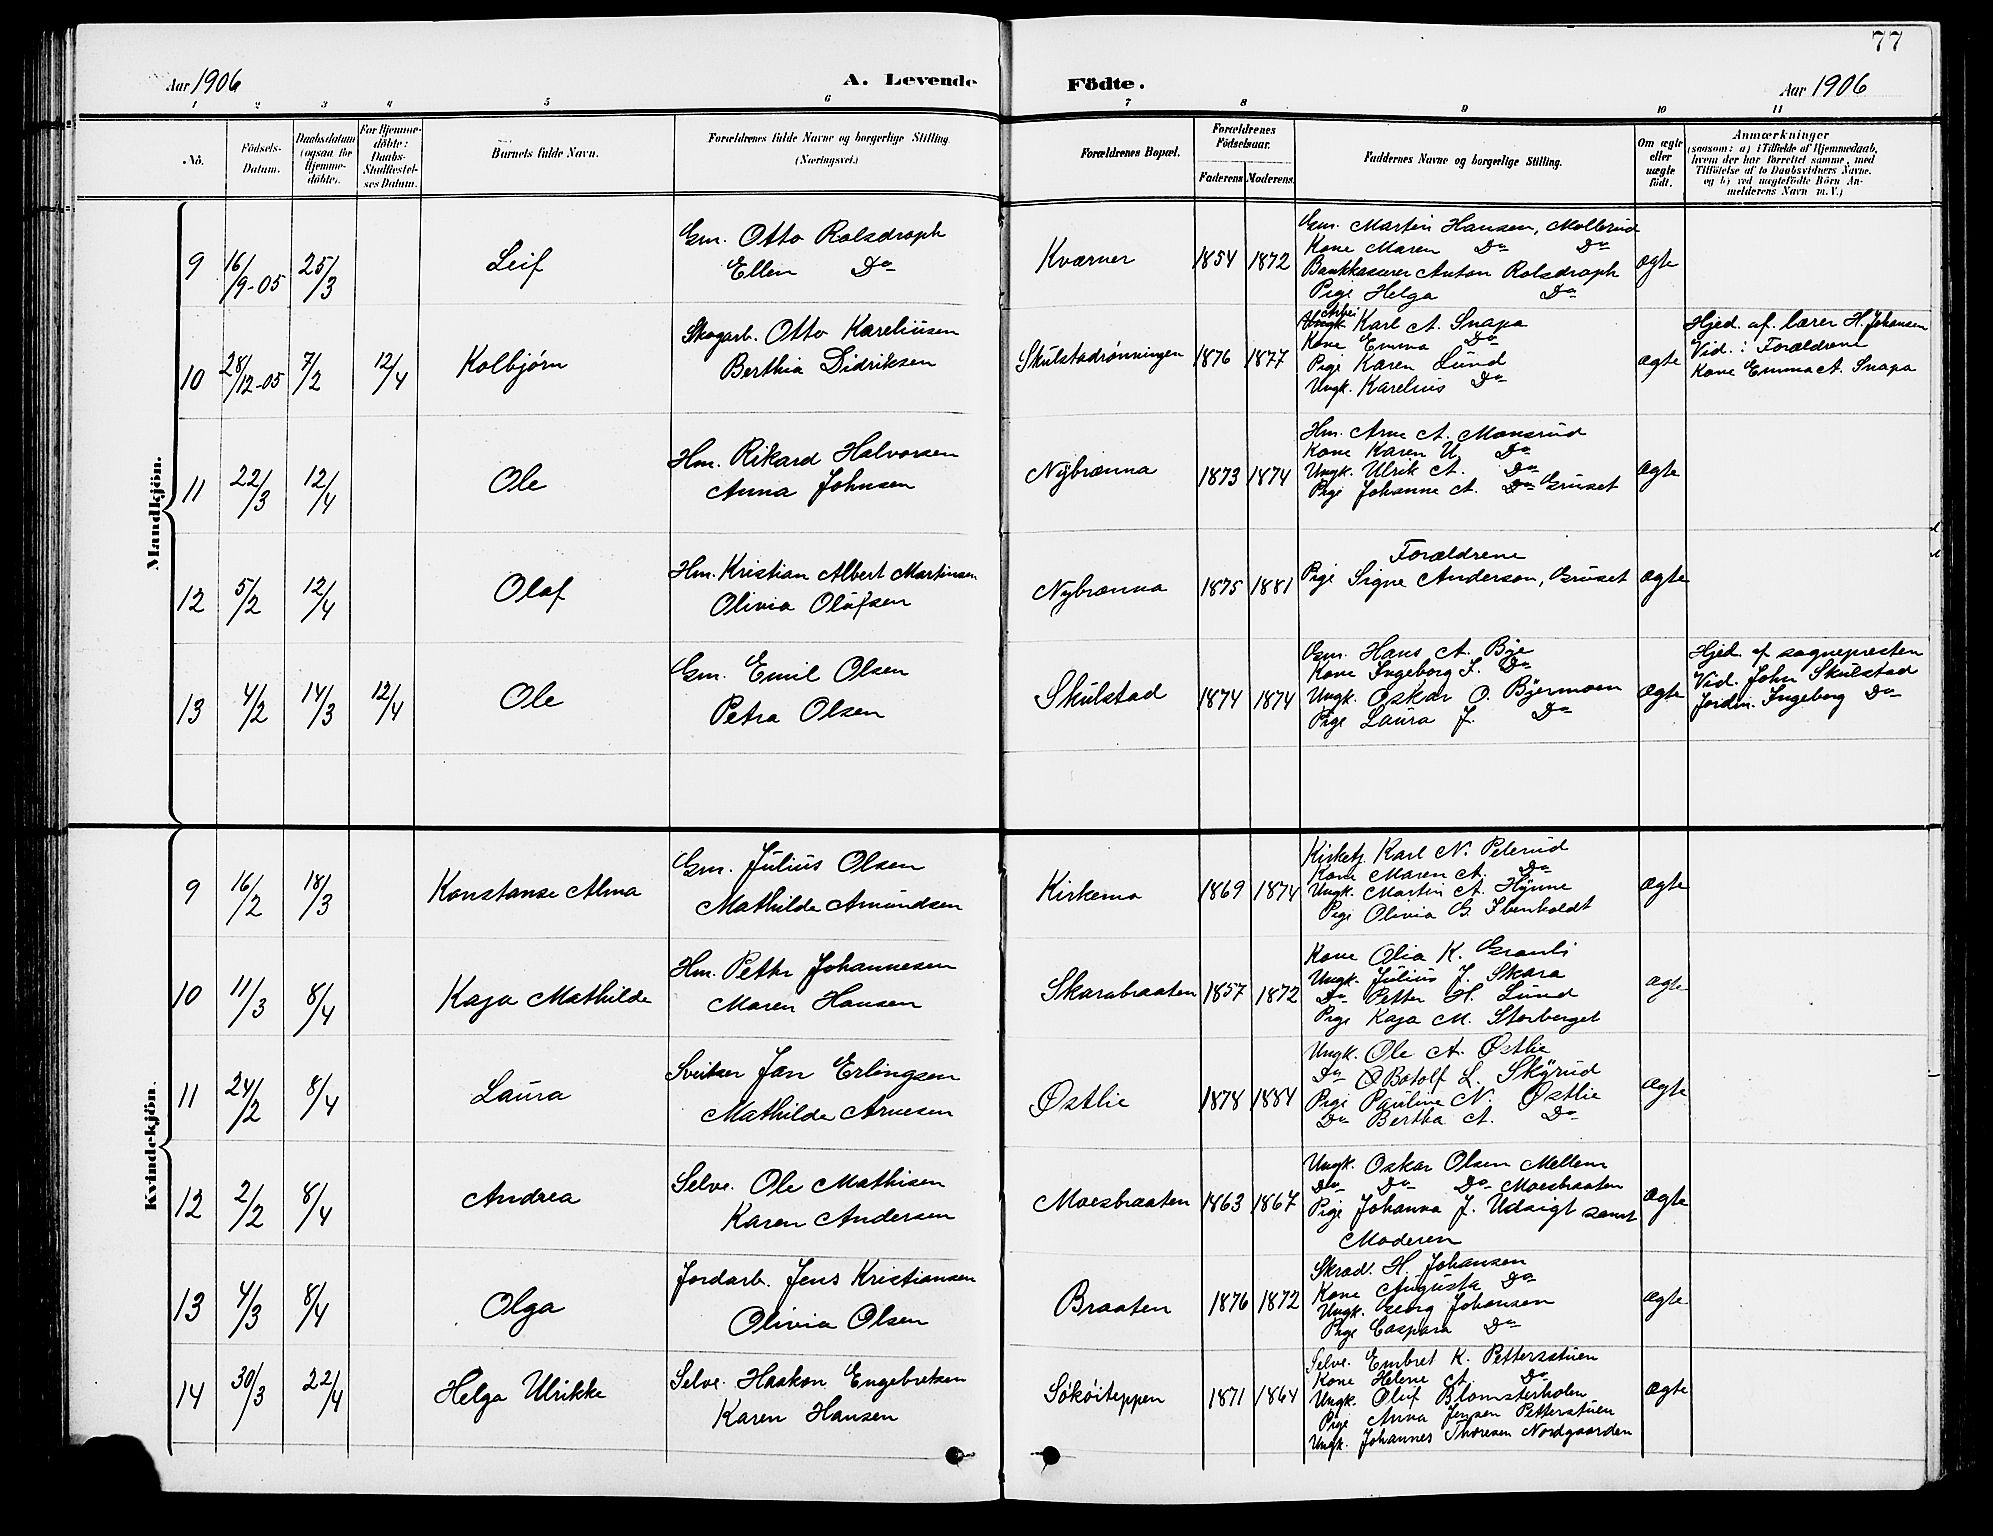 77
Aar 1906 A. Levende Födte. Aar 1906
1 2 3 4 5 6 7 8 9 10 11
No. Födsels-Datum. Daabsdatum (ogsaa for Hjemmedöbte). For Hjemmedöbte: Daabs-Stadfestelses Datum. Barnets fulde Navn. Forældrenes fulde Navne og borgerlige Stilling (Næringsvei.) Forældrenes Bopæl. Forældrenes Födselsaar. Faderens Moderens Faddernes Navne og borgerlige Stilling. Om ægte eller uægte födt. Anmærkninger (saasom: a) i Tilfælde af Hjemmedaab, hvem der har forrettet samme, med Tilföielse af to Daabsvidners Navne, og b) ved uægtefödte Börn Anmelderens Navn m. V.)
Mandkjön.
9 16/9-05 25/3 Leif Gm. Otto Rolsdroph Kværner 1854 1872 Gm. Martin Hansen, Mollerud ægte
Ellen Do
Kone Maren Do Do
Bankkaserer Anton Rolsdroph
Pige Helga Do
10 28/12-05 7/2 12/4 Kolbjørn Skogarb. Otto Kareliusen Skulstadrønningen 1876 1877 Arbei Karl A. Snapa ægte Hjed. af lærer H. Johansen
Berthia Didriksen
Kone Emma Do
Pige Karen Lund
Ungk. Karelius Do
Vid.: Forældrene
Kone Emma A. Snapa
11 22/3 12/4 Ole Hm. Rikard Halvorsen Nybrænna 1873 1874 Hm. Arne A. Monsrud ægte
Anna Johnsen
Kone Karen U. Do
Ungk. Ulrik A. Do
Pige Johanne A. Do Gruset
12 5/2 12/4 Olaf Hm. Kristian Albert Martinsen Nybrænna 1875 1881 Forældrene ægte
Olivia Olufsen
Pige Signe Anderson, Gruset
13 4/2 14/3 12/4 Ole Gm. Emil Olsen Skulstad 1874 1874 Gm. Hans A. Bye ægte Hjed. af sognepresten
Petra Olsen
Kone Ingeborg J. Do
Ungk. Oskar O. Byermoen
Pige Laura J. Do
Vid. John Skulstad
Jordm. Ingeborg Do
Kvindekjön.
9 16/2 18/3 Konstanse Alma Gm. Julius Olsen Kirkemo 1869 1874 Kirketj. Karl N. Peterud ægte
Mathilde Amundsen
Kone Maren A. Do
Ungk. Martin A. Hynne
Pige Olivia G. Ibenholdt
10 11/3 8/4 Kaja Mathilde Hm. Petter Johannesen Skarabraaten 1857 1872 Kone Olia K. Granli ægte
Maren Hansen
Ungk. Julius J. Skara
Do Petter H. Lund
Pige Kaja M. Storberget
11 24/2 8/4 Laura Sveitser Jan Erlingsen Østlie 1878 1884 Ungk. Ole A. Østlie ægte
Mathilde Arnesen
Do O Botolf L. Skyrud
Pige Pauline N. Østlie
Do Bertha A. Do
12 2/2 8/4 Andrea Selve. Ole Mathisen Moesbraaten 1863 1867 Ungk. Oskar Olsen Mellem ægte
Karen Andersen
Do Do Do Moesbraaten
Pige Johanna J. Udsigt samt
Moderen
13 4/3 8/4 Olga Jordarb. Jens Kristiansen Braaten 1876 1872 Skræd. H. Johansen ægte
Olivia Olsen
Kone Augusta Do
Ungk. Georg Johansen
Pige Caspara Do
14 30/3 22/4 Helga Ulrikke Selve. Haakon Engebretsen Søkøiteppen 1871 1864 Selve. Embret K. Petterstuen ægte
Karen Hansen
Kone Helene A. Do
Ungk. Oluf Blomsterholen
Pige Anna Jensen Petterstuen
Ungk. Johannes Thoresen Nordgaarden